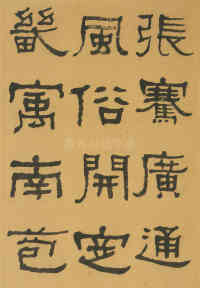 張騫廣通
風俗開定
畿寓南苞